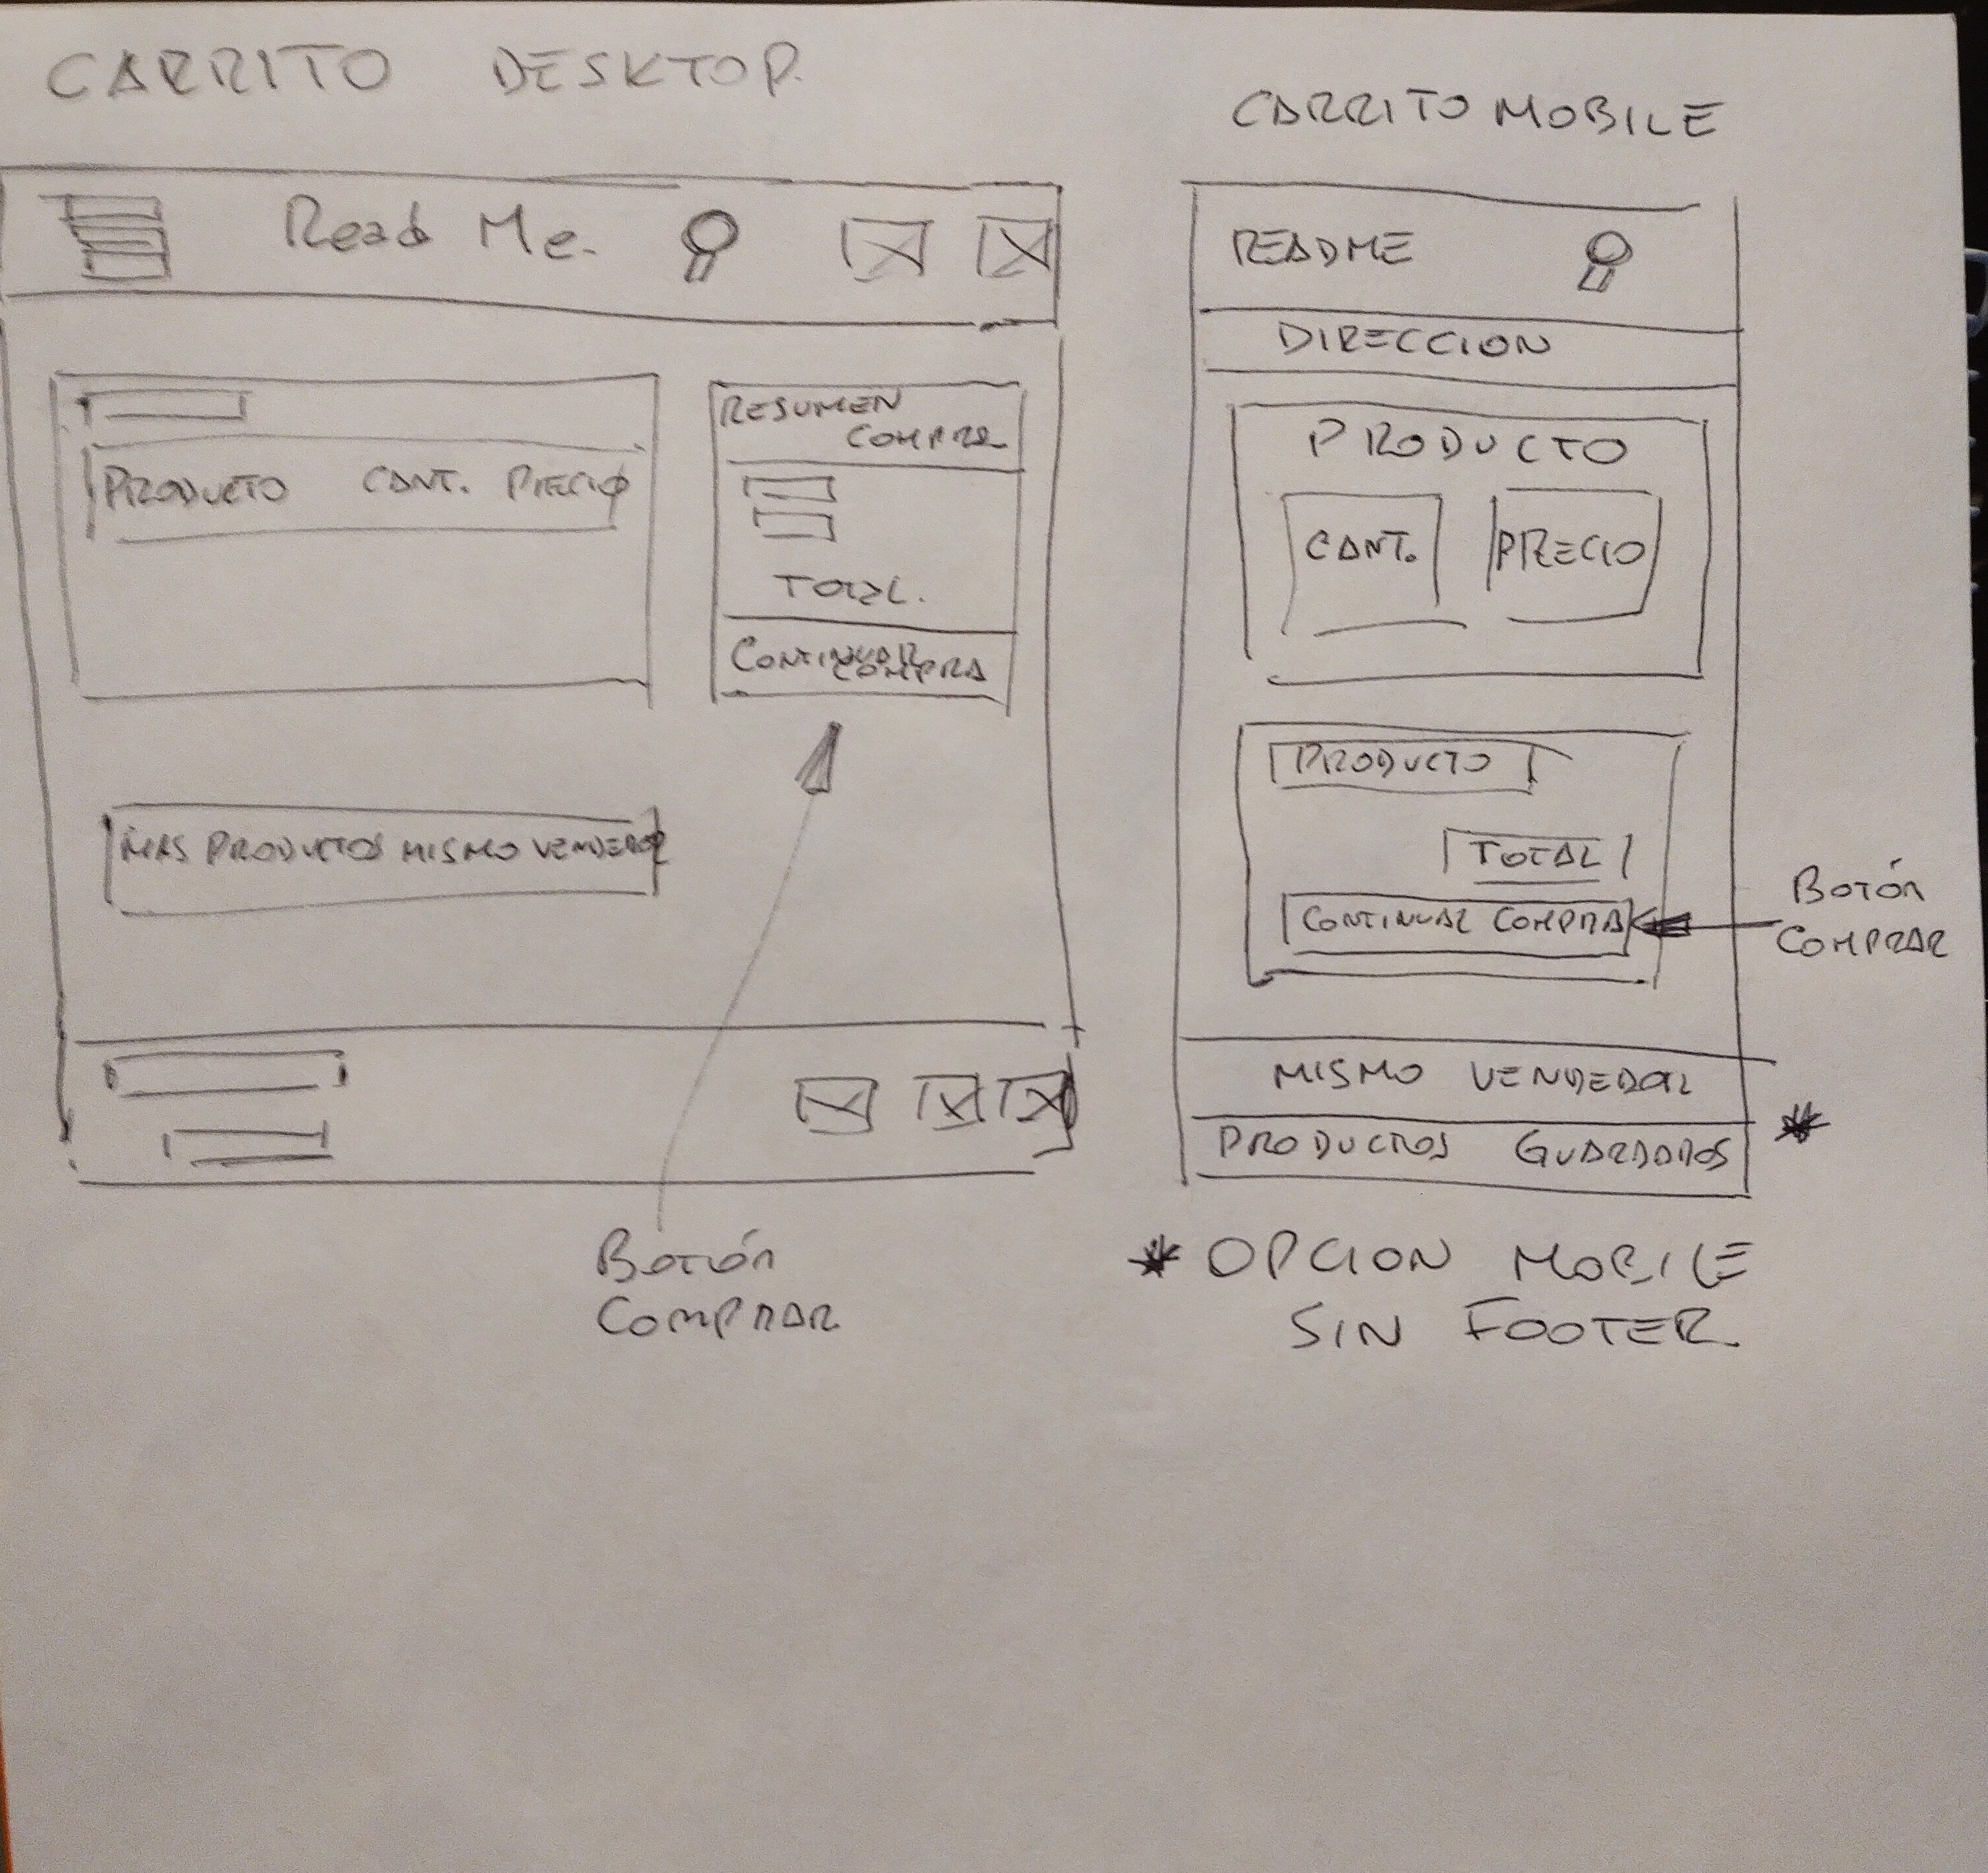 CARRITO DESKTOP.
Read Me.
PRODUCTO CANT. PRECIO
RESUMEN
COMPRA
TOTAL.
CONTINUAR
COMPRA
MAS PRODUCTOS MISMO VENDEDOR
BOTÓN
COMPRAR
CARRITO MOBILE
README
DIRECCION
PRODUCTO
CANT. PRECIO
PRODUCTO
TOTAL
CONTINUAR COMPRA
BOTÓN
COMPRAR
MISMO VENDEDOR
PRODUCTOS GUARDADOS *
* OPCION MOBILE
SIN FOOTER.